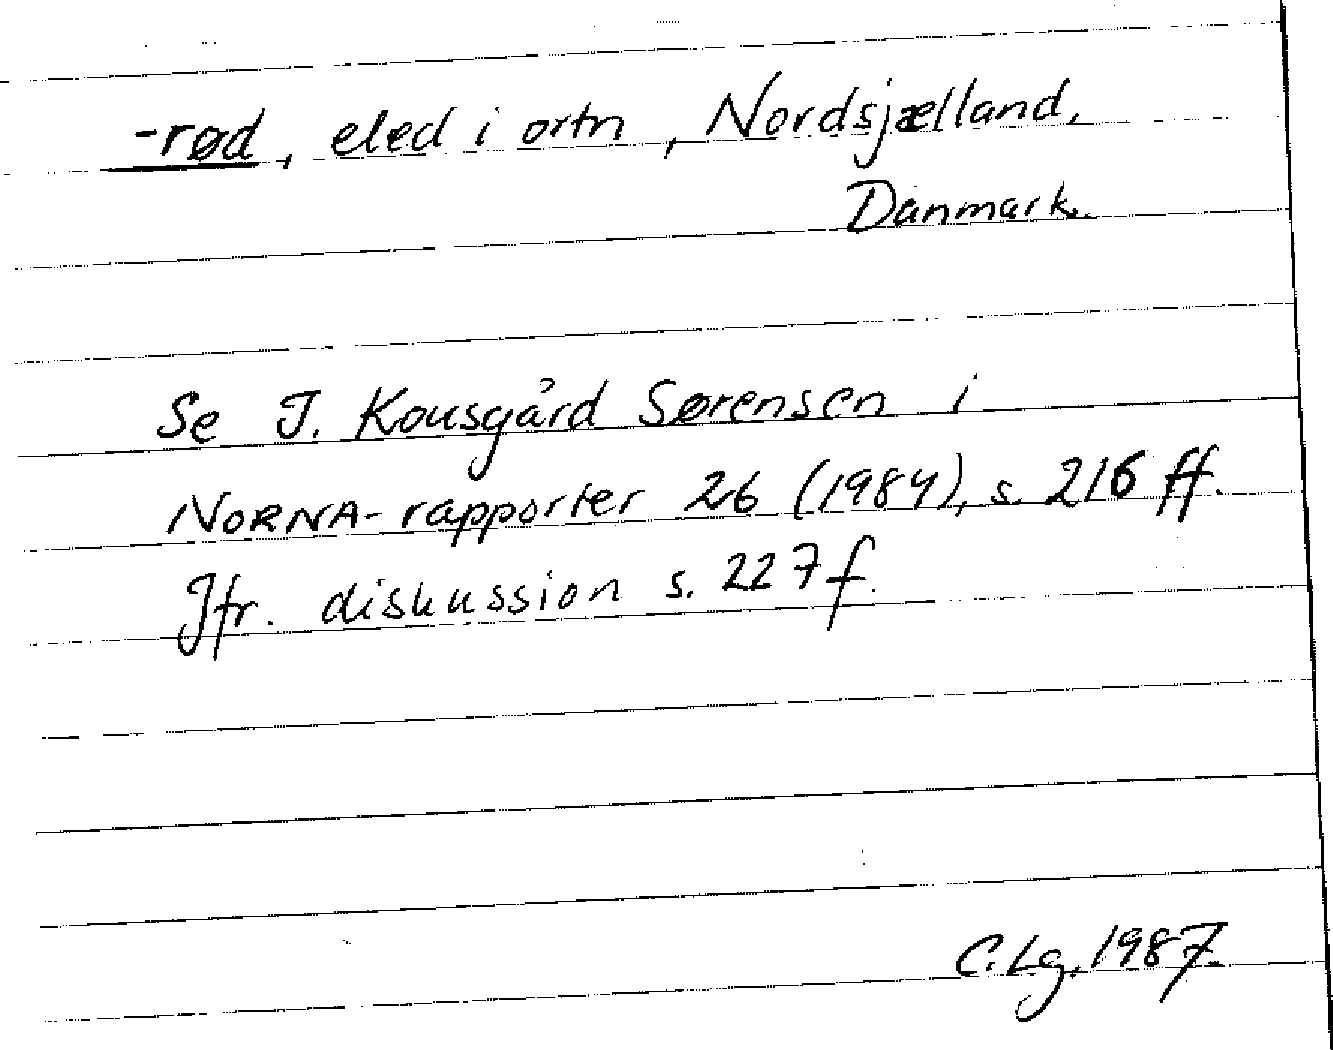 -rød, eled i ortn, Nordsjælland,
Danmark.
Se J. Kousgård Sørensen i
NORNA-rapporter 26 (1984), s. 216 ff.
Jfr. diskussion s. 227 f.
C. Lg. 1987.